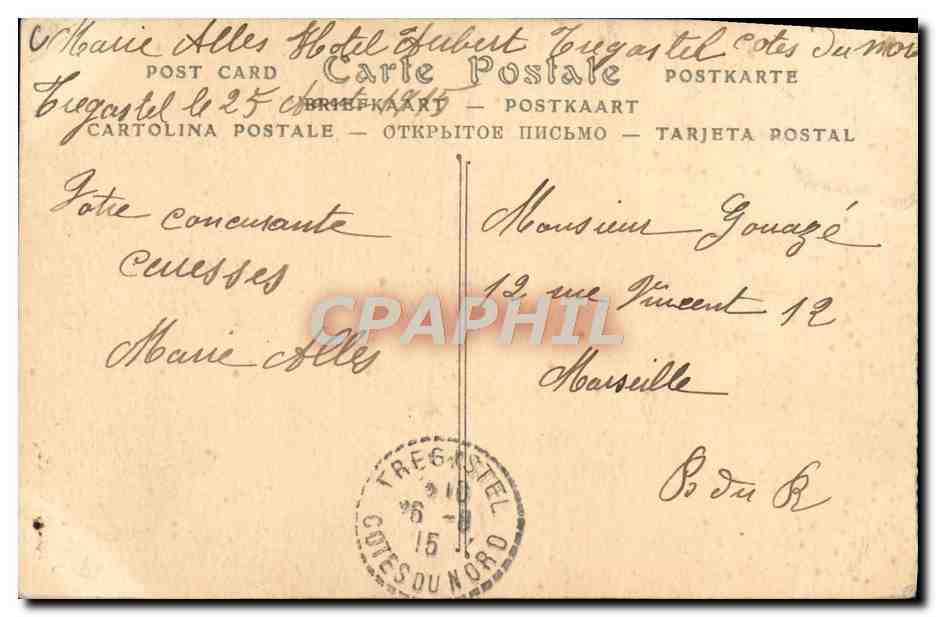 Marie Alles Hotel Aubert Tregastel Cotes du Nor
POST CARD Carte Postale POSTKARTE
Tregastel le 25 Aout 1915
BRIEFKAART — POSTKAART
CARTOLINA POSTALE — ОТКРЫТОЕ ПИСЬМО — TARJETA POSTAL
Votre concurante
Monsieur Gouazé
12 rue Vincent 12
Marie Alles
Marseille
B du R
CPAPHIL
TREGASTEL
26 -8
15
COTES DU NORD